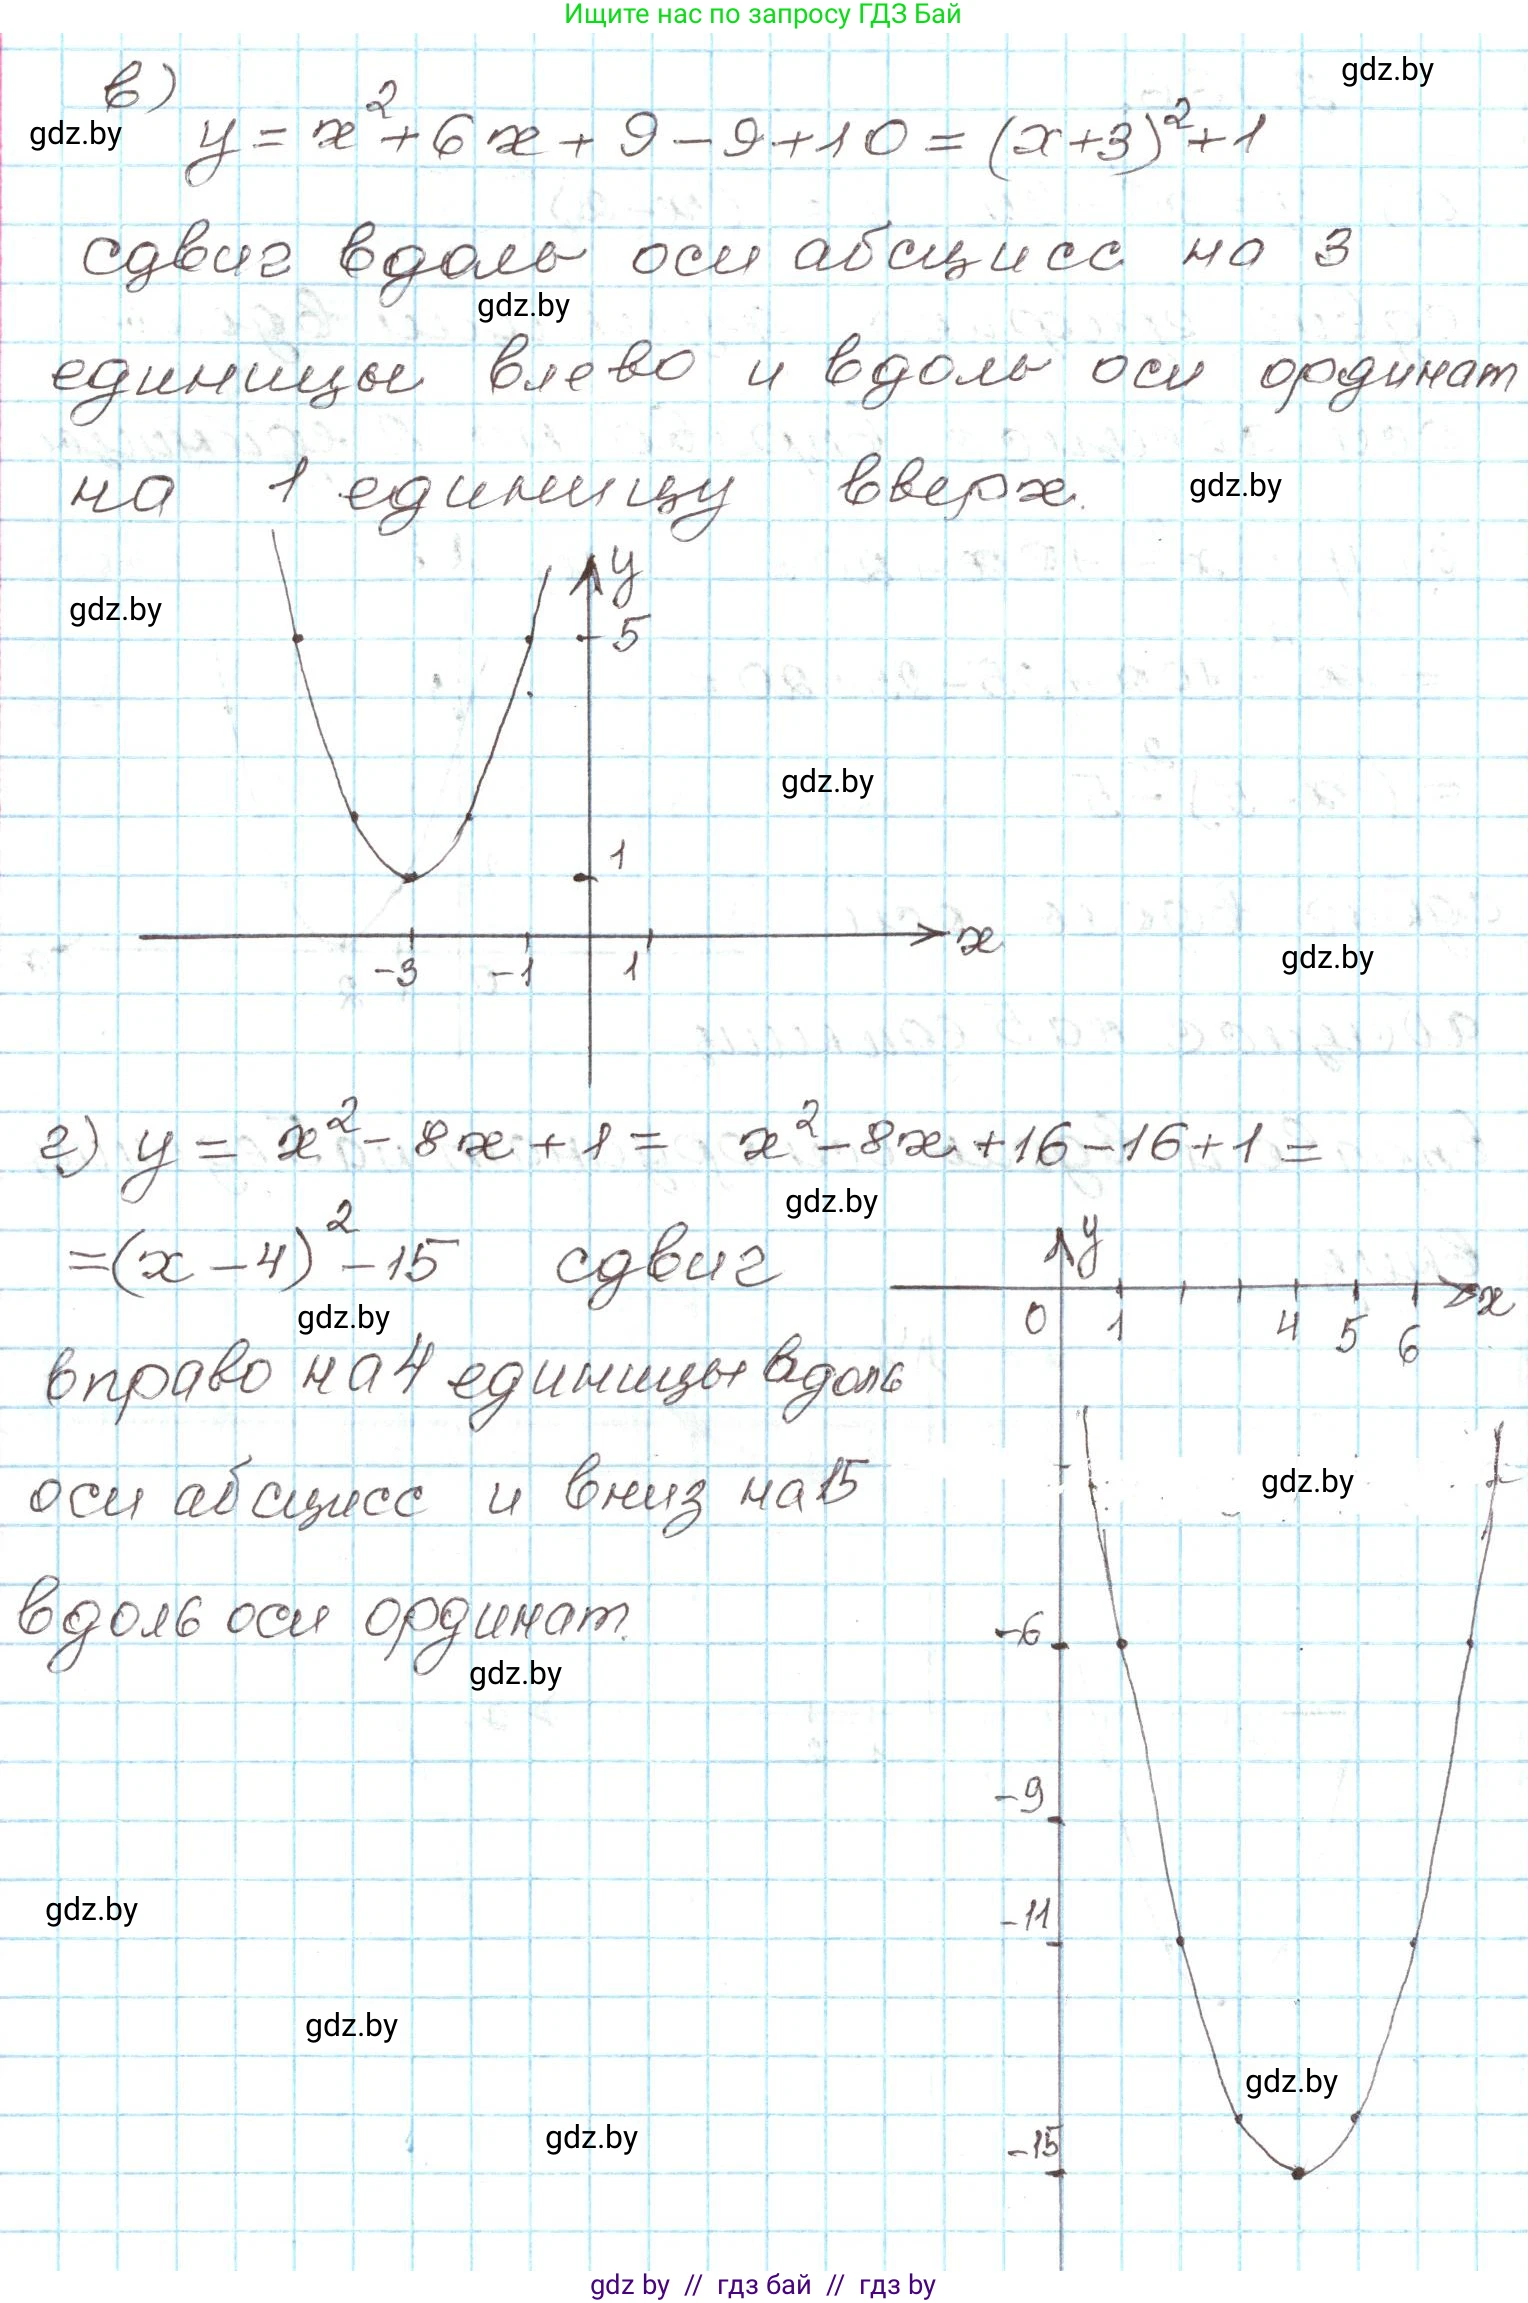 Ищите нас по запросу ГДЗ Бай
gdz.by
в)
gdz.by
y = x² + 6x + 9 - 9 + 10 = (x+3)² + 1
сдвиг вдоль оси абсцисс на 3
gdz.by
единицы влево и вдоль оси ординат
на 1 единицу вверх.
gdz.by
y
gdz.by
5
gdz.by
1
x
-3 -1 1
gdz.by
г) y = x² - 8x + 1 = x² - 8x + 16 - 16 + 1 =
gdz.by
= (x - 4)² - 15 сдвиг
y
x
0 1 4 5 6
gdz.by
вправо на 4 единицы вдоль
оси абсцисс и вниз на 15
gdz.by
вдоль оси ординат.
-6
gdz.by
-9
gdz.by
-11
gdz.by
gdz.by
gdz.by
-15
gdz by // гдз бай // гдз by